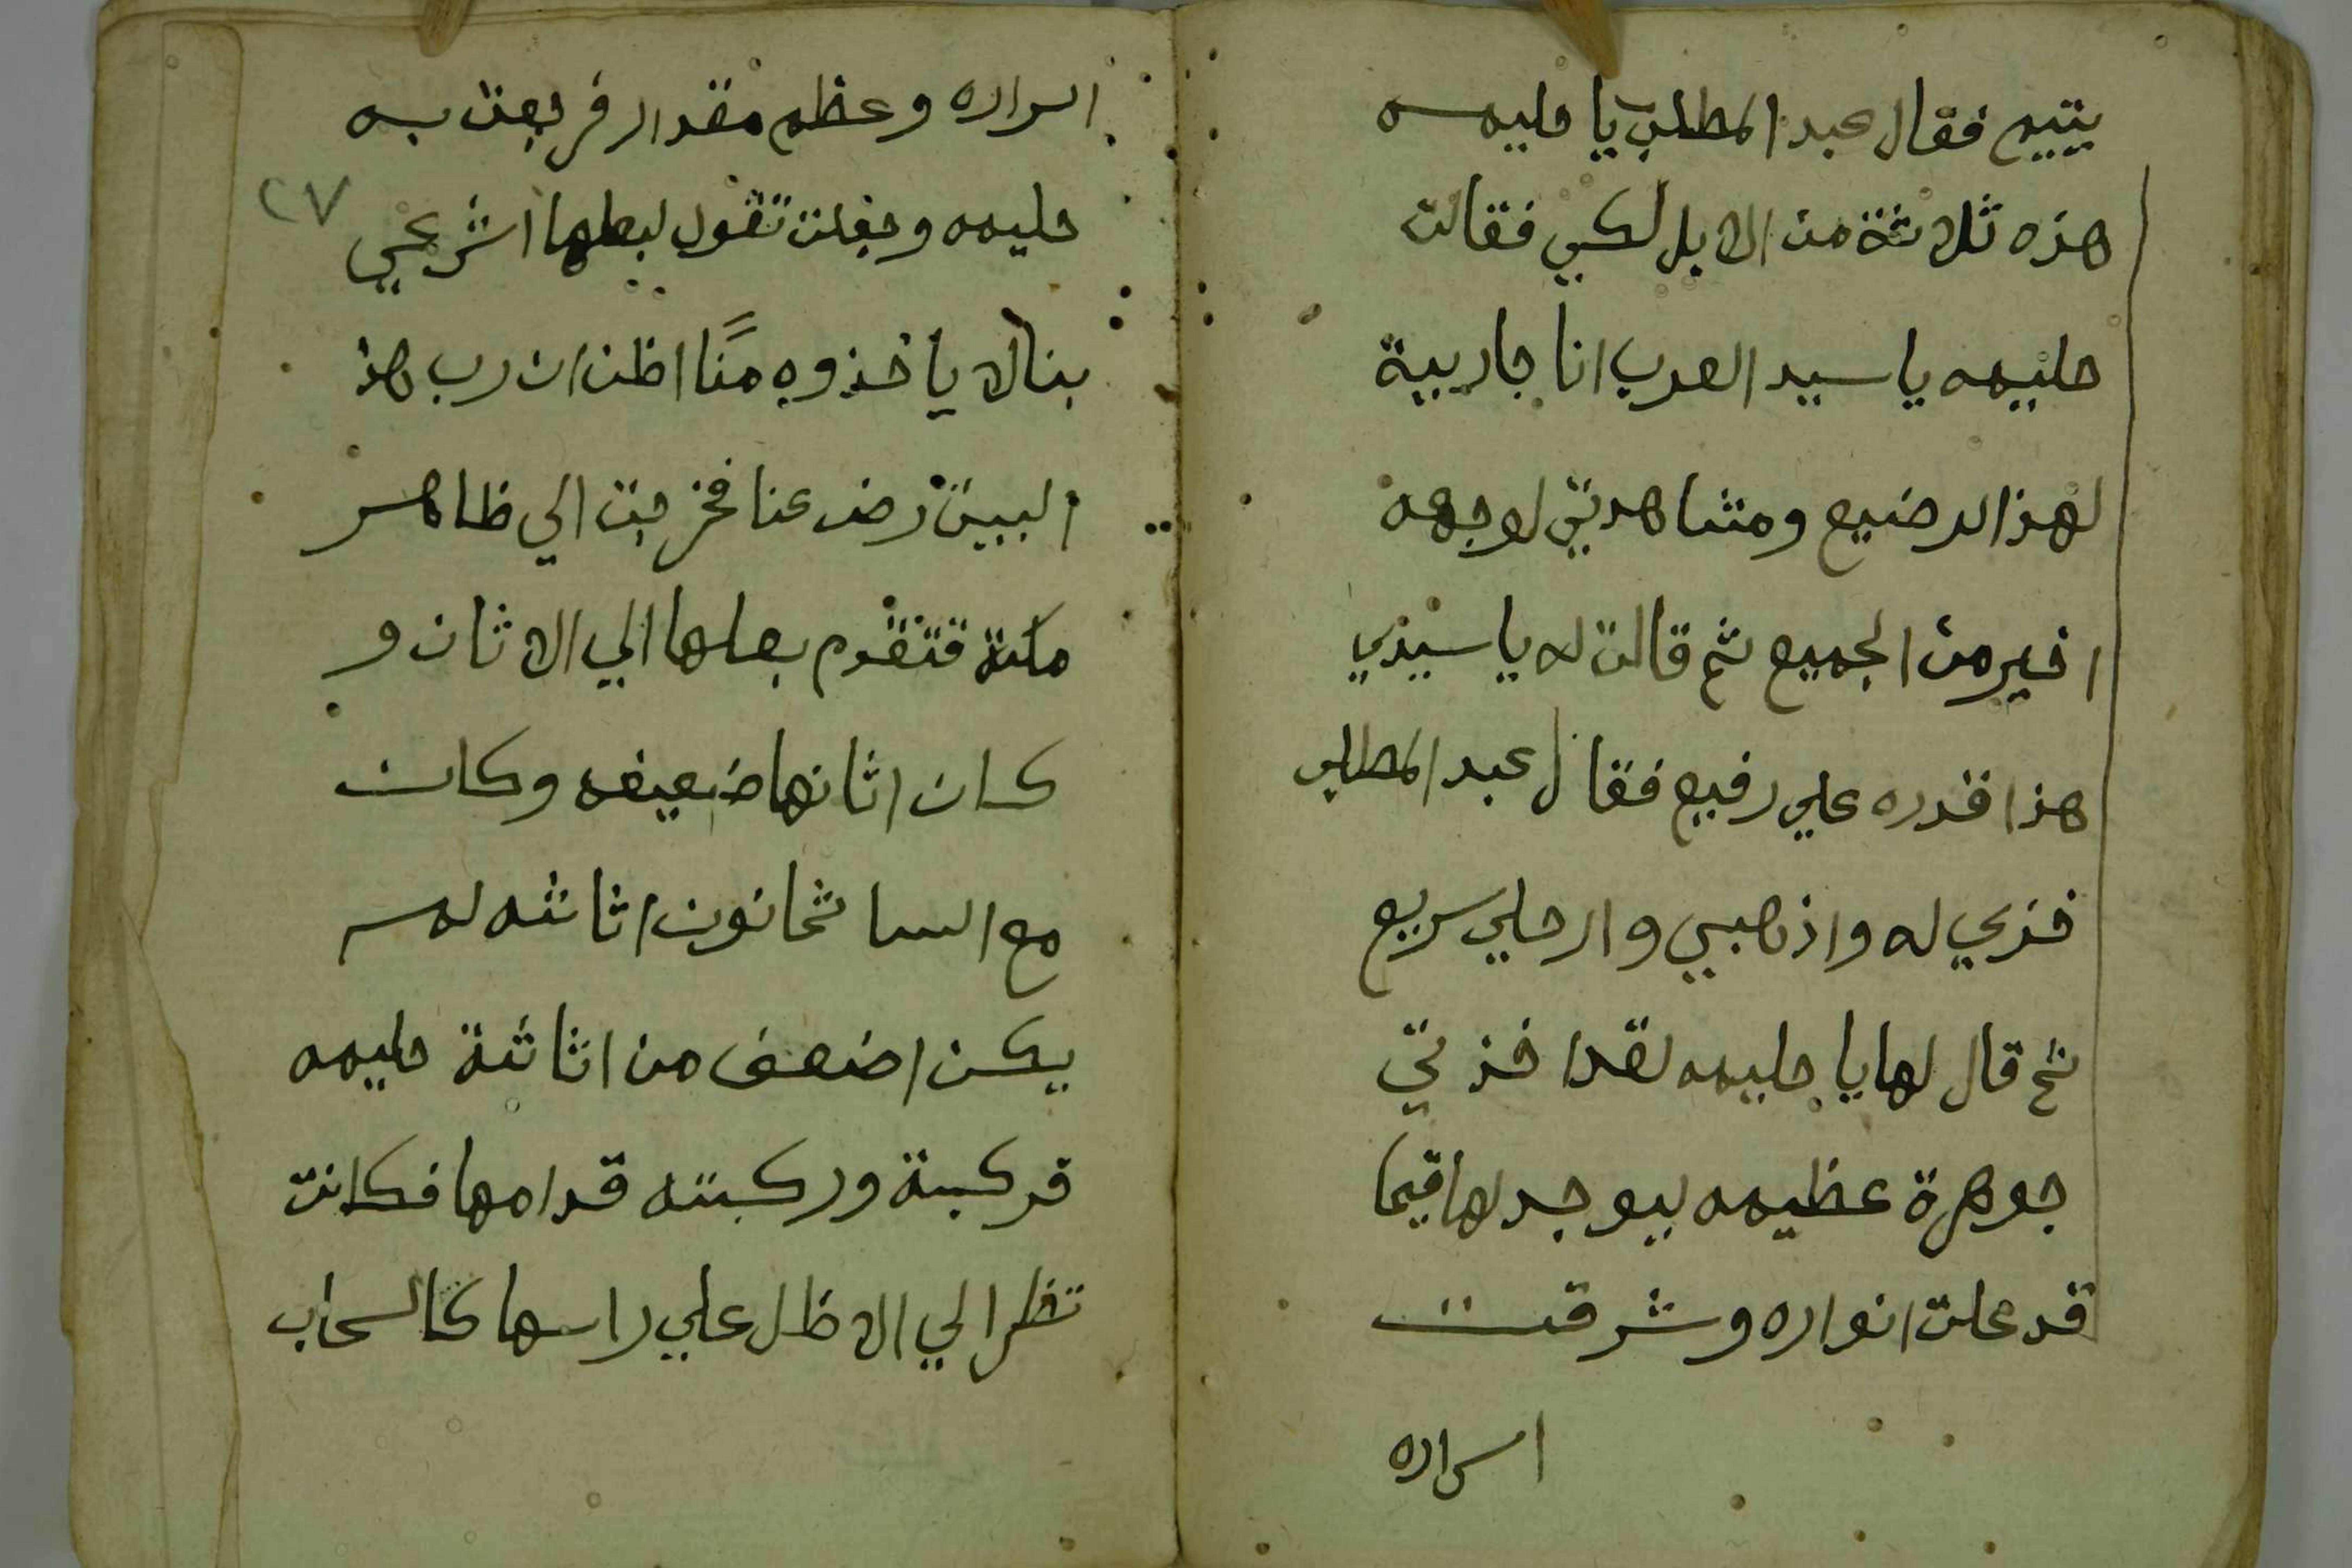 يتيم فقال عبد المطلب يا حليمه
هذه ثلاثة من الابل لكي فقالت
حليمه يا سيد العرب انا جاريية
لهذا الرضيع ومشاهدتي لوجهه
اخير من الجميع ثم قالت له يا سيدي
هذا قدره علي رفيع فقال عبد المطلب
فذي له واذهبي وارحلي سريع
ثم قال لها يا حليمه لقد اخذتي
جوهرة عظيمه ليوجد لها قيما
قد علت انواره وشرقت
اسراره
اسراره وعظم مقدار فرجعت به
٢٧
حليمه وجعلت تقول لبعلها اشرعي
بنا لا ياخذوه منا اظن ان رب هذا
البيت رضى عنا فخرجت الي ظاهر
مكة فتقدم بعلها الي الاثان و
كان اثانها ضعيفه وكان
مع النسا ثمانون اثانثه لم
يكن اضعف من اثانثة حليمه
فركبة وركبته قدامها فكانت
تنظر الي الاظل علي راسها كالسحاب